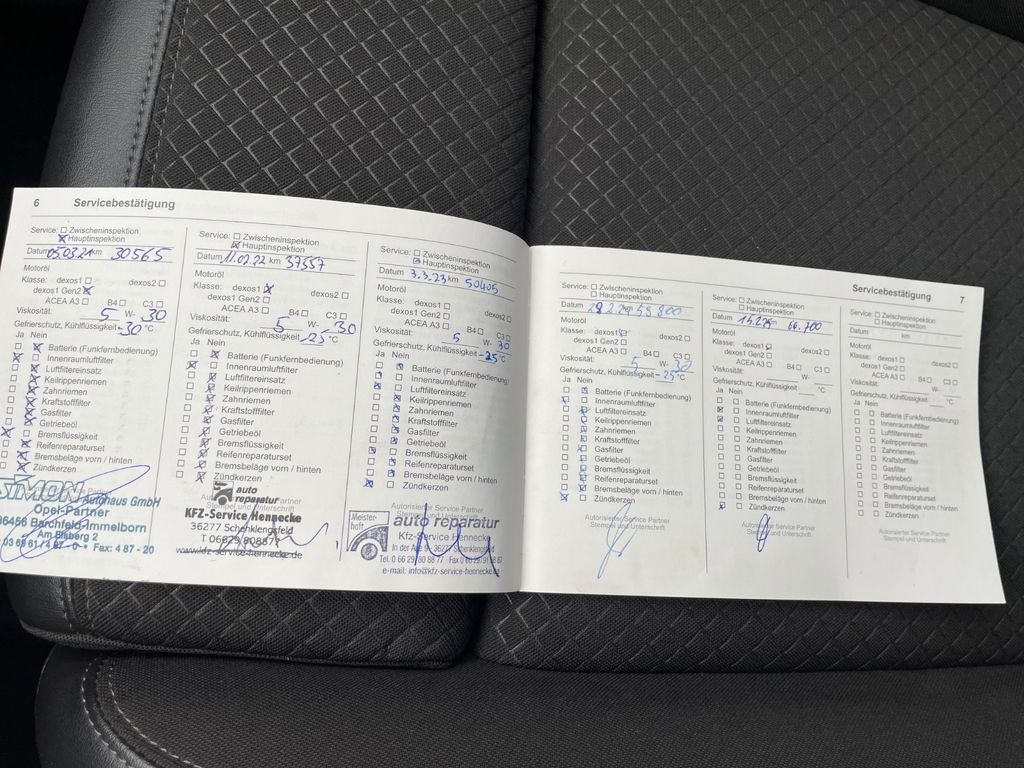 6 Servicebestätigung
Service: ☐ Zwischeninspektion
☒ Hauptinspektion
Datum 05.03.21 km 30565
Motoröl
Klasse: dexos1 ☐ dexos2 ☐
dexos1 Gen2 ☒
ACEA A3 ☐ B4 ☐ C3 ☐
Viskosität: 5 W- 30
Gefrierschutz, Kühlflüssigkeit -30 °C
Ja Nein
Batterie (Funkfernbedienung)
Innenraumluftfilter
Luftfiltereinsatz
Keilrippenriemen
Zahnriemen
Kraftstofffilter
Gasfilter
Getriebeöl
Bremsflüssigkeit
Reifenreparaturset
Bremsbeläge vorn / hinten
Zündkerzen
SIMON Autohaus GmbH
Opel-Partner
36456 Barchfeld-Immelborn
Am Bisberg 2
Fax: 4 87 - 20
Service: ☐ Zwischeninspektion
☒ Hauptinspektion
Datum 11.02.22 km 37557
Motoröl
Klasse: dexos1 ☒ dexos2 ☐
dexos1 Gen2 ☐
ACEA A3 ☐ B4 ☐ C3 ☐
Viskosität: 5 W- 30
Gefrierschutz, Kühlflüssigkeit -25 °C
Ja Nein
Batterie (Funkfernbedienung)
Innenraumluftfilter
Luftfiltereinsatz
Keilrippenriemen
Zahnriemen
Kraftstofffilter
Gasfilter
Getriebeöl
Bremsflüssigkeit
Reifenreparaturset
Bremsbeläge vorn / hinten
Zündkerzen
auto
reparatur
KFZ-Service Hennecke
36277 Schenklengsfeld
T 06629/808877
www.kfz-service-hennecke.de
Service: ☐ Zwischeninspektion
☒ Hauptinspektion
Datum 3.3.23 km 50405
Motoröl
Klasse: dexos1 ☐ dexos2 ☐
dexos1 Gen2 ☐
ACEA A3 ☐ B4 ☐ C3 ☐
Viskosität: 5 W- 30
Gefrierschutz, Kühlflüssigkeit -25 °C
Ja Nein
Batterie (Funkfernbedienung)
Innenraumluftfilter
Luftfiltereinsatz
Keilrippenriemen
Zahnriemen
Kraftstofffilter
Gasfilter
Getriebeöl
Bremsflüssigkeit
Reifenreparaturset
Bremsbeläge vorn / hinten
Zündkerzen
Autorisierter Service Partner
Meister-
haft
auto reparatur
Kfz-Service Hennecke
36277 Schenklengsfeld
Tel. 0 66 29/80 88 77
e-mail: info@kfz-service-hennecke.de
Servicebestätigung 7
Service: ☐ Zwischeninspektion
☐ Hauptinspektion
Datum km 59 800
Motoröl
Klasse: dexos1 dexos2 ☐
dexos1 Gen2 ☐
ACEA A3 ☐ B4 ☐ C3 ☐
Viskosität: 5 W- 30
Gefrierschutz, Kühlflüssigkeit -25 °C
Ja Nein
Batterie (Funkfernbedienung)
Innenraumluftfilter
Luftfiltereinsatz
Keilrippenriemen
Zahnriemen
Kraftstofffilter
Gasfilter
Getriebeöl
Bremsflüssigkeit
Reifenreparaturset
Bremsbeläge vorn / hinten
Zündkerzen
Autorisierter Service Partner
Stempel und Unterschrift
Service: ☐ Zwischeninspektion
☐ Hauptinspektion
Datum km 66.700
Motoröl
Klasse: dexos1 dexos2 ☐
dexos1 Gen2 ☐
ACEA A3 ☐ B4 ☐ C3 ☐
Viskosität: W-
Gefrierschutz, Kühlflüssigkeit °C
Ja Nein
Batterie (Funkfernbedienung)
Innenraumluftfilter
Luftfiltereinsatz
Keilrippenriemen
Zahnriemen
Kraftstofffilter
Gasfilter
Getriebeöl
Bremsflüssigkeit
Reifenreparaturset
Bremsbeläge vorn / hinten
Zündkerzen
Autorisierter Service Partner
Stempel und Unterschrift
Service: ☐ Zwischeninspektion
☐ Hauptinspektion
Datum km
Motoröl
Klasse: dexos1 ☐ dexos2 ☐
dexos1 Gen2 ☐
ACEA A3 ☐ B4 ☐ C3 ☐
Viskosität: W-
Gefrierschutz, Kühlflüssigkeit °C
Ja Nein
Batterie (Funkfernbedienung)
Innenraumluftfilter
Luftfiltereinsatz
Keilrippenriemen
Zahnriemen
Kraftstofffilter
Gasfilter
Getriebeöl
Bremsflüssigkeit
Reifenreparaturset
Bremsbeläge vorn / hinten
Zündkerzen
Autorisierter Service Partner
Stempel und Unterschrift